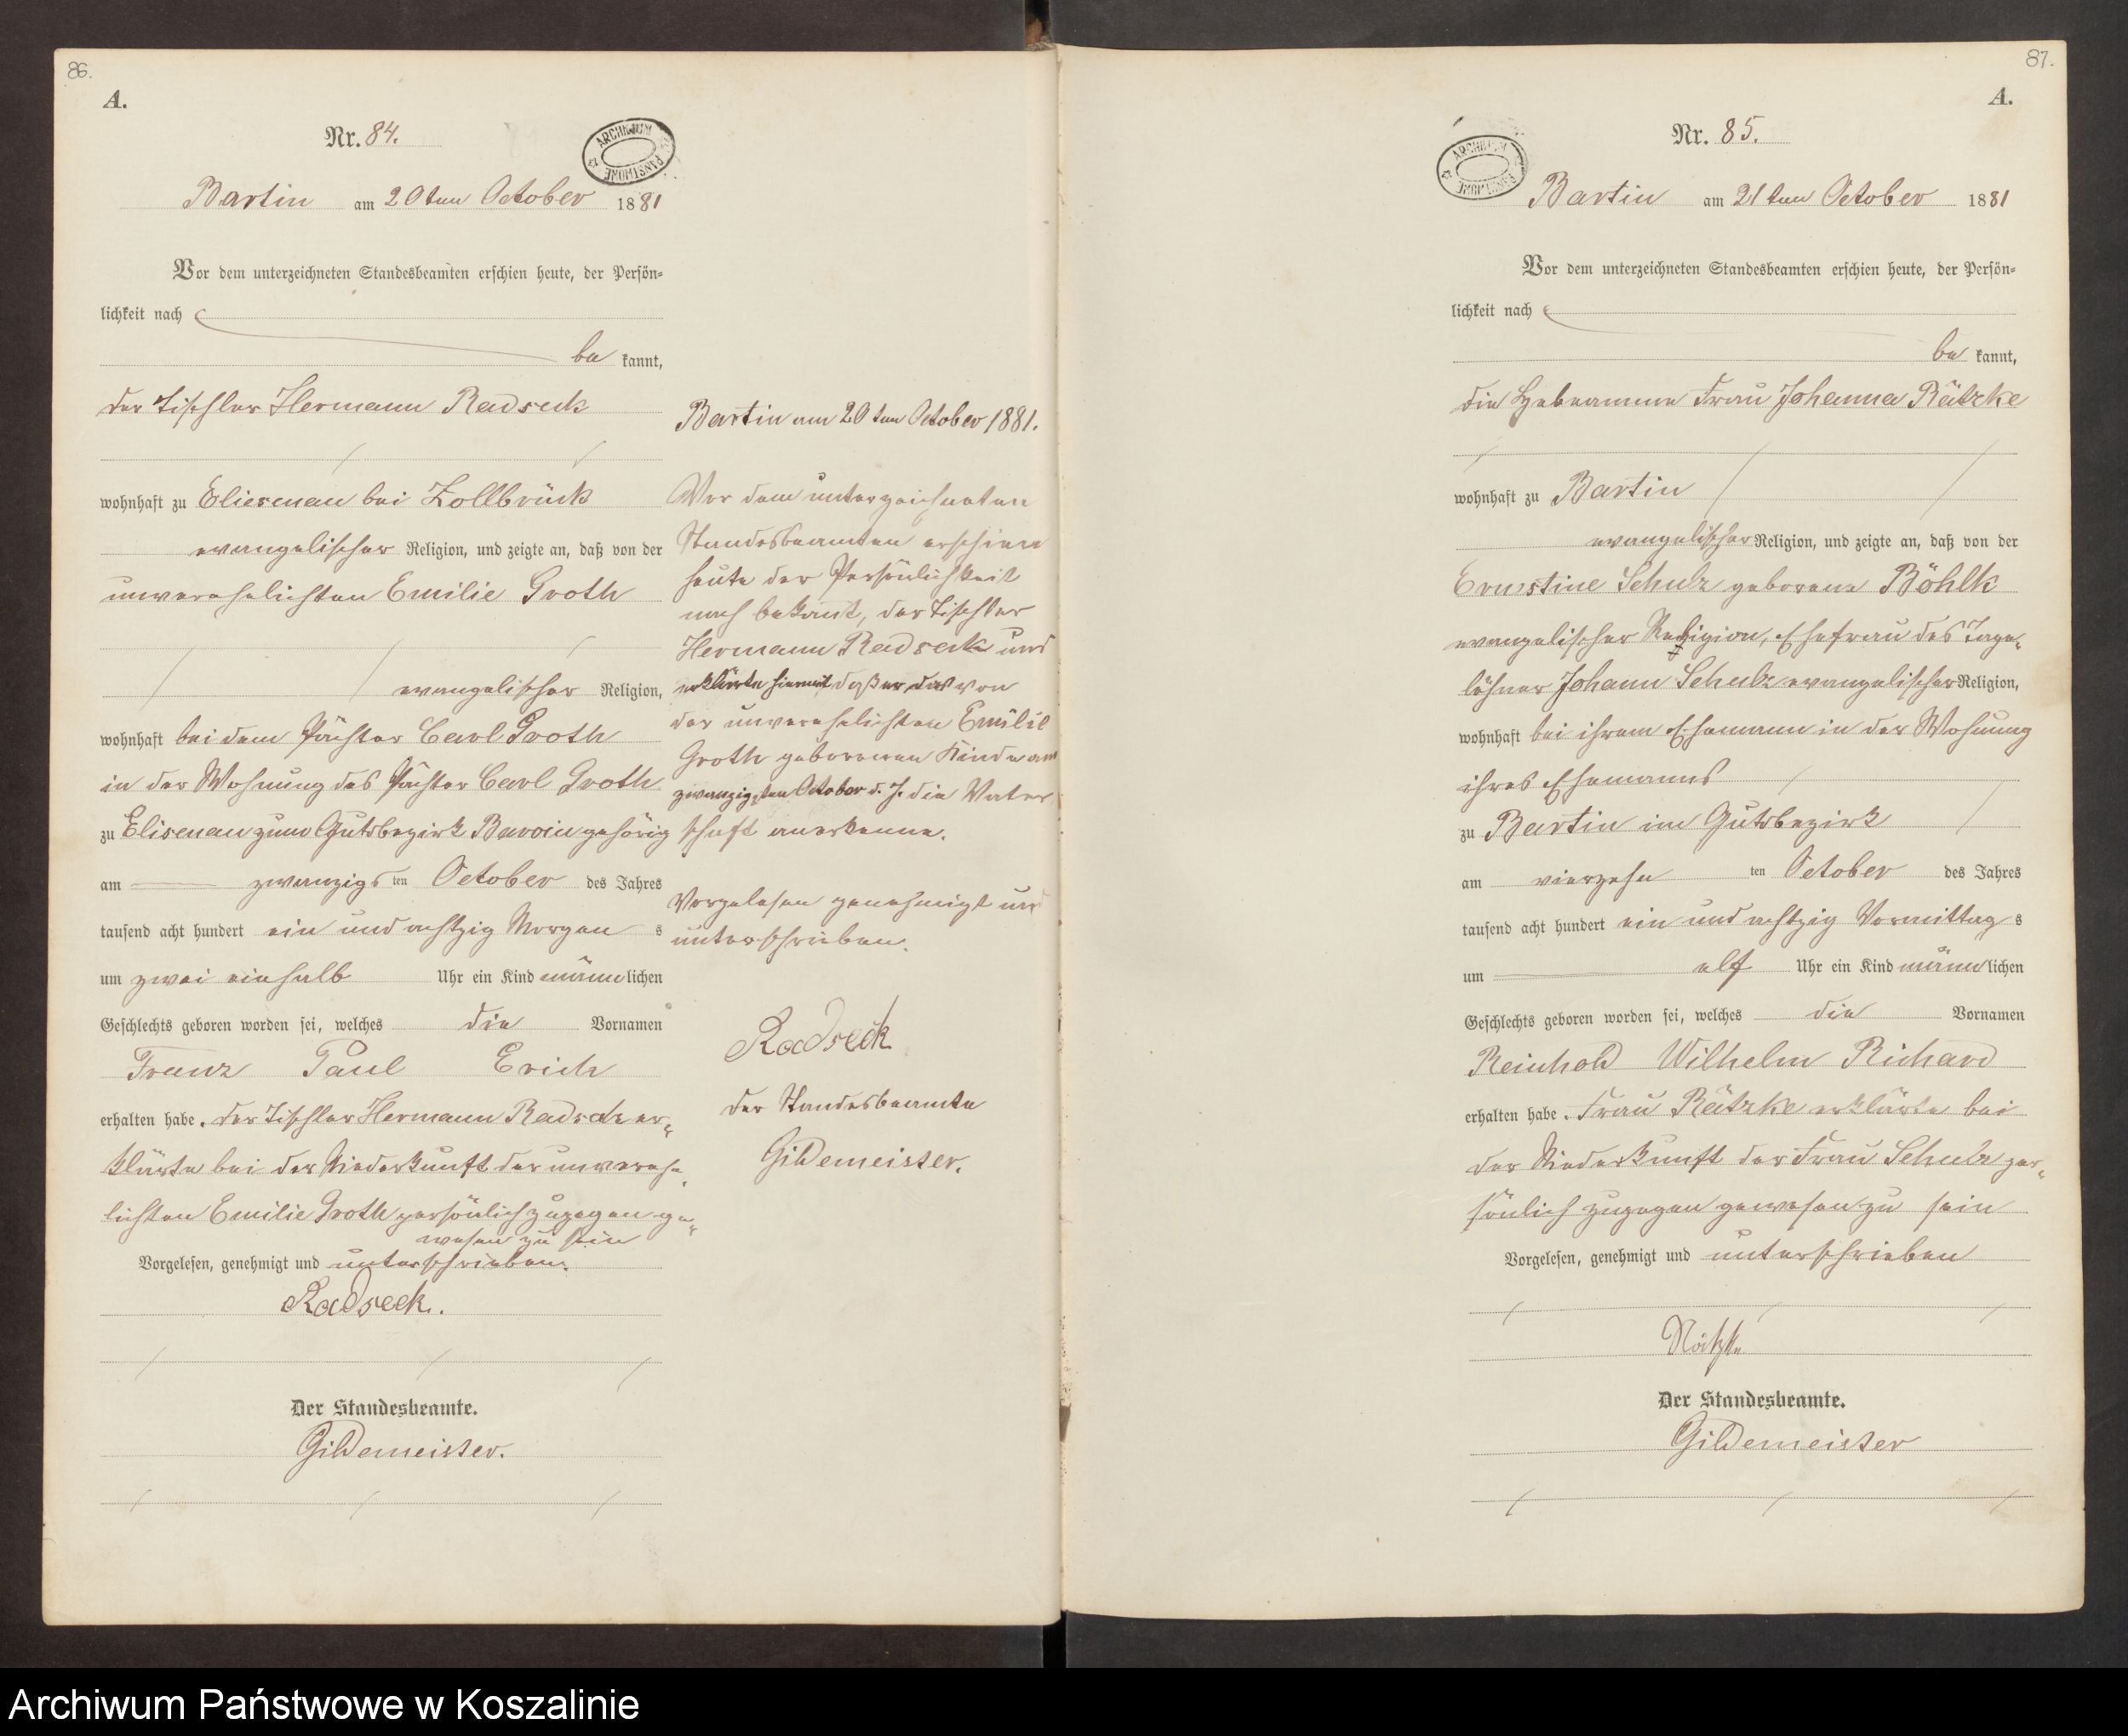 86.
A.
Nr. 84.
ARCHIWUM PAŃSTWOWE
Bartin am 20ten October 1881
Vor dem unterzeichneten Standesbeamten erschien heute, der Persön-
lichkeit nach
be kannt,
der Tischler Hermann Radseck
wohnhaft zu Eliesenau bei Zollbrück
evangelischer Religion, und zeigte an, daß von der
unverehelichten Emilie Groth
evangelischer Religion,
wohnhaft bei dem Pächter Carl Groth
in der Wohnung des Pächter Carl Groth
zu Elisenau zum Gutsbezirk gehörig
am zwanzigsten October des Jahres
tausend acht hundert ein und achtzig Morgens
um zwei einhalb Uhr ein Kind männlichen
Geschlechts geboren worden sei, welches die Vornamen
Franz Paul Erich
erhalten habe. Der Tischler Hermann Radseck er-
klärte bei der Niederkunft der unverehe-
lichten Emilie Groth persönlich zugegen ge-
wesen zu sein
Vorgelesen, genehmigt und unterschrieben.
Radseck.
Der Standesbeamte.
Gildemeister.
Bartin am 20ten October 1881.
Vor dem unterzeichneten
Standesbeamten erschien
heute der Persönlichkeit
nach bekannt, der Tischler
Hermann Radseck und
erklärte hiermit, daß er das von
der unverehelichten Emilie
Groth geborenen Kinde am
zwanzigsten October d. J. die Vater
schaft anerkenne.
Vorgelesen genehmigt und
unterschrieben.
Radseck
Der Standesbeamte
Gildemeister.
87.
A.
Nr. 85.
ARCHIWUM PAŃSTWOWE
Bartin am 21ten October 1881
Vor dem unterzeichneten Standesbeamten erschien heute, der Persön-
lichkeit nach
be kannt,
die Hebeamme Frau Johanna Rätzke
wohnhaft zu Bartin
evangelischer Religion, und zeigte an, daß von der
Ernestine Schulz geborene Böhlk
evangelischer Religion, Ehefrau des Tage-
löhner Johann Schulz evangelischer Religion,
wohnhaft bei ihrem Ehemann in der Wohnung
ihres Ehemanns
zu Bartin im Gutsbezirk
am vierzehnten October des Jahres
tausend acht hundert ein und achtzig Vormittags
um elf Uhr ein Kind männlichen
Geschlechts geboren worden sei, welches die Vornamen
Reinhold Wilhelm Richard
erhalten habe. Frau Rätzke erklärte bei
der Niederkunft der Frau Schulz per-
sönlich zugegen gewesen zu sein
Vorgelesen, genehmigt und unterschrieben
Rätzke
Der Standesbeamte.
Gildemeister
Archiwum Państwowe w Koszalinie